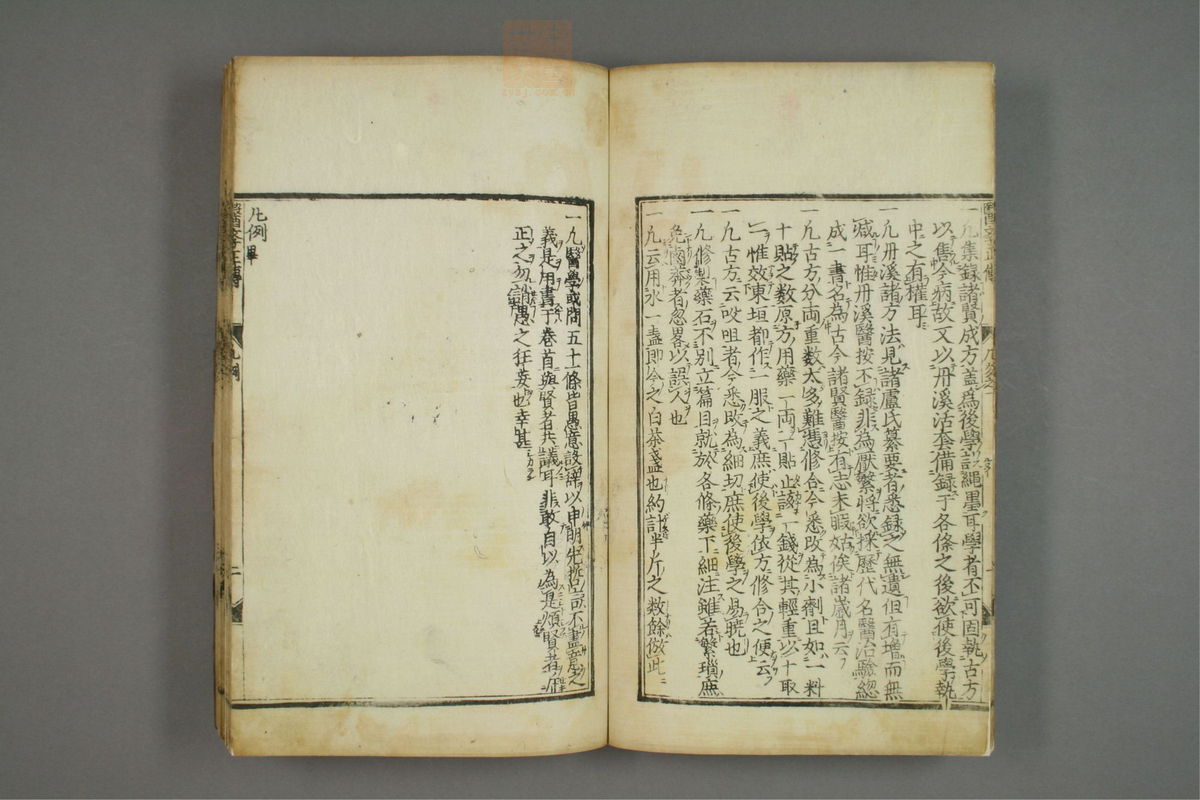 一凡集録諸賢成方盖為後學設繩墨耳學者不可固執古方
以售今病故又以丹溪活套備録于各條之後欲使後學執
中之有權耳
一凡丹溪諸方法見諸盧氏纂要者悉録之無遺但有增而無
減耳惟丹溪醫按不録非為厭繁將欲採歴代名醫治驗総
成一書名為古今諸賢醫按有志未暇姑俟諸歳月云
一凡古方分両重数太多難憑修合今悉改為小劑且如一料
十貼之数原方用藥一両一貼止該一錢從其輕重以十取
一惟效東垣都作一服之義庶使後學依方修合之便云
一凡古方云㕮咀者今悉改為細切庶使後學之易曉也
一凡修製藥石不別立篇目就於各條藥下細注雖若繁瑣庶
免鹵莽者忽畧以誤人也
一凡云用水一盞即今之白茶盞也約計半斤之数餘倣此
一凡醫學或問五十一條皆愚意設辭以申明先哲言不盡意之
義是用書于卷首與賢者共議耳非敢自以為是煩賢者
正之勿誚愚之狂妄也幸甚
凡例畢
醫學正傳
凡例
二